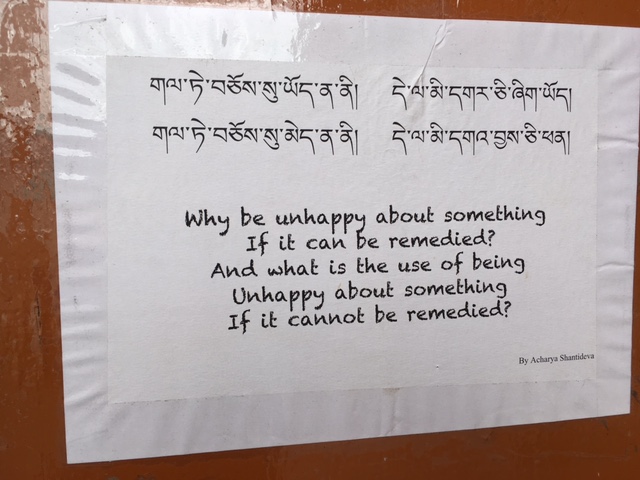 གལ་ཏེ་བཅོས་སུ་ཡོད་ན་ནི། དེ་ལ་མི་དགར་ཅི་ཞིག་ཡོད།
གལ་ཏེ་བཅོས་སུ་མེད་ན་ནི། དེ་ལ་མི་དགའ་བྱས་ཅི་ཕན།
Why be unhappy about something
If it can be remedied?
And what is the use of being
Unhappy about something
If it cannot be remedied?
By Acharya Shantideva